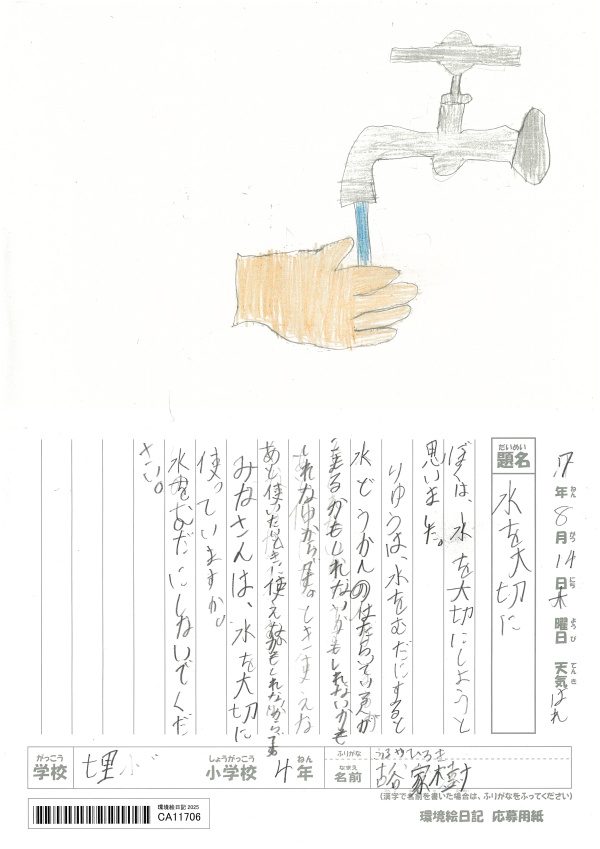 7年ねん8月がつ14日にち木曜日ようび 天気てんきはれ
題名だいめい 水を大切に
ぼくは、水を大切にしようと
思いました。
りゆうは、水をむだにすると
水どうかんのはたらいている人が
こまるかもしれないかもしれないかも
しれないからだ。ときに使えな
あと使いたいときに使えないかもしれないから
みなさんは、水を大切に
使っていますか。
水をむだにしないでくだ
さい。
がっこう 学校 しょうがっこう 小学校 4年ねん
ふりがな ひろき
なまえ 名前 古谷 家樹
(漢字で名前を書いた場合は、ふりがなをふってください)
環境絵日記 2025
CA11706
環境絵日記 応募用紙